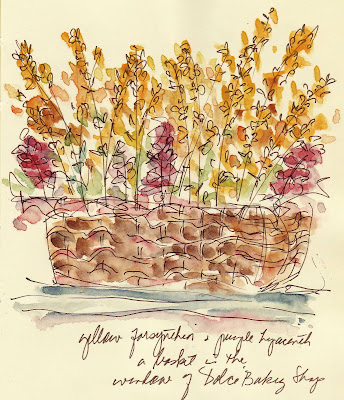 yellow forsynthia & purple hyacinth
a basket in the
window of Dolce Bakery Shop